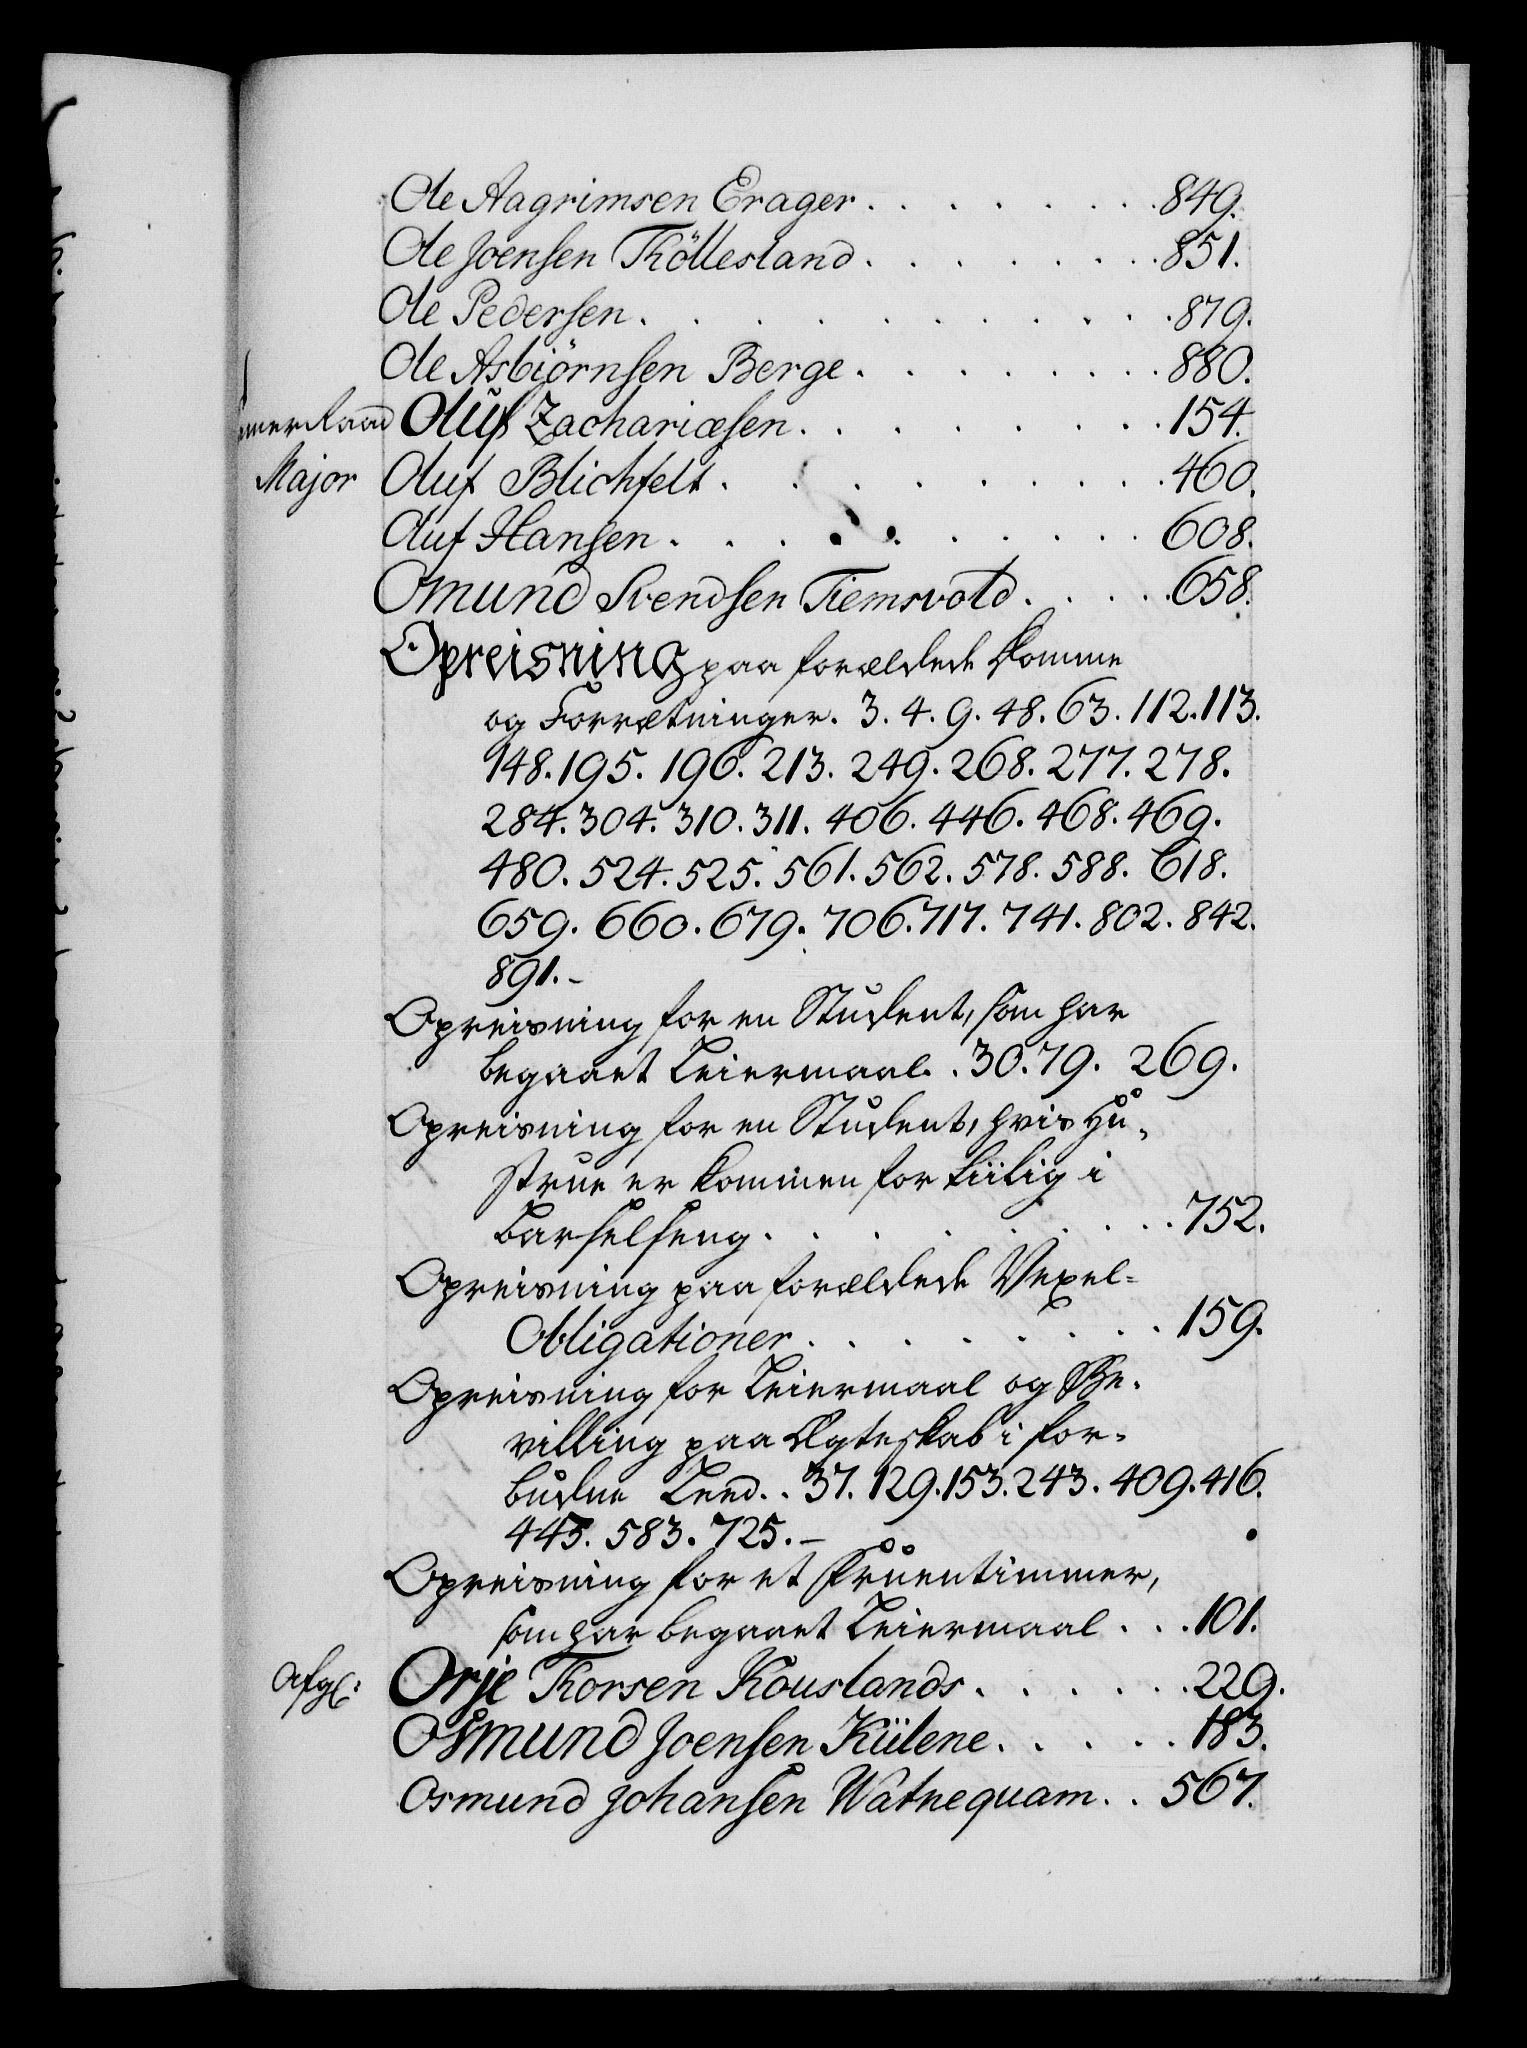 Ole Aagrimsen Erager . . . . . . . . 849.
Ole Joensen Thöllesland . . . . . . . . 851.
Ole Pedersen . . . . . . . . . . 879.
Ole Asbiörnsen Berge . . . . . . . . 880.
merRaad Oluf Zachariæsen . . . . . . . . 154.
Major Oluf Blichfelt . . . . . . . . 460.
Oluf Hansen . . . . . . . . . 608.
Omund Svendsen Tiemsvold . . . . 658.
Opreisning paa forældede Domme
og Forrætninger. 3. 4. 9. 48. 63. 112. 113.
148. 195. 196. 213. 249. 268. 277. 278.
284. 304. 310. 311. 406. 446. 468. 469.
480. 524. 525. 561. 562. 578. 588. 618.
659. 660. 679. 706. 717. 741. 802. 842.
891. -
Opreisning for en Student, som har
begaaet Leiermaal. . 30. 79. 269.
Opreisning for en Student, hvis Hu-
strue er kommen for tiilig i
Barselseng . . . . . . . . 752.
Opreisning paa forældede Vexel-
Obligationer . . . . . . . 159.
Opreisning for Leiermaal og Be-
villing paa Ægteskab i for-
budne Leed. . 37. 129. 153. 243. 409. 416.
443. 583. 725. -
Opreisning for et Fruentimmer,
som har begaaet Leiermaal . . . 101.
Afgl: Orje Thorsen Kouslands . . . . . . 229.
Osmund Joensen Kiilene . . . . . 183.
Osmund Johansen Watnequam . . 567.